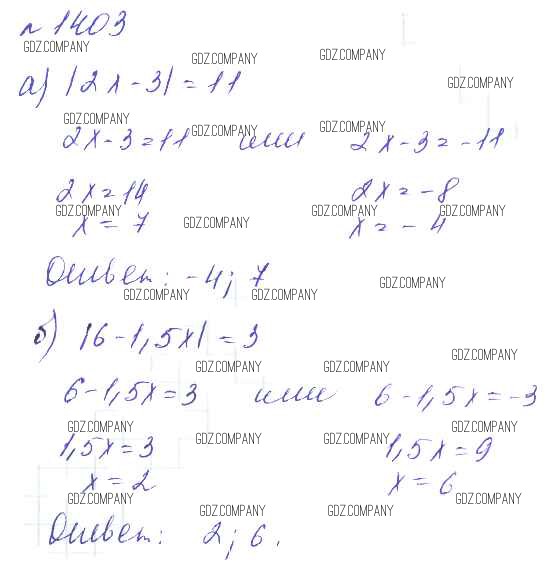 № 1403
GDZ.COMPANY GDZ.COMPANY GDZ.COMPANY
а) |2x-3| = 11 GDZ.COMPANY
GDZ.COMPANY GDZ.COMPANY GDZ.COMPANY
2x-3=11 или 2x-3=-11
2x=14 2x=-8
GDZ.COMPANY GDZ.COMPANY GDZ.COMPANY GDZ.COMPANY
x=7 x=-4
Ответ: -4; 7 GDZ.COMPANY
GDZ.COMPANY GDZ.COMPANY
б) |6-1,5x| = 3 GDZ.COMPANY
GDZ.COMPANY GDZ.COMPANY
6-1,5x=3 или 6-1,5x=-3
GDZ.COMPANY GDZ.COMPANY GDZ.COMPANY GDZ.COMPANY
1,5x=3 1,5x=9
x=2 x=6
GDZ.COMPANY GDZ.COMPANY GDZ.COMPANY GDZ.COMPANY
Ответ: 2; 6.